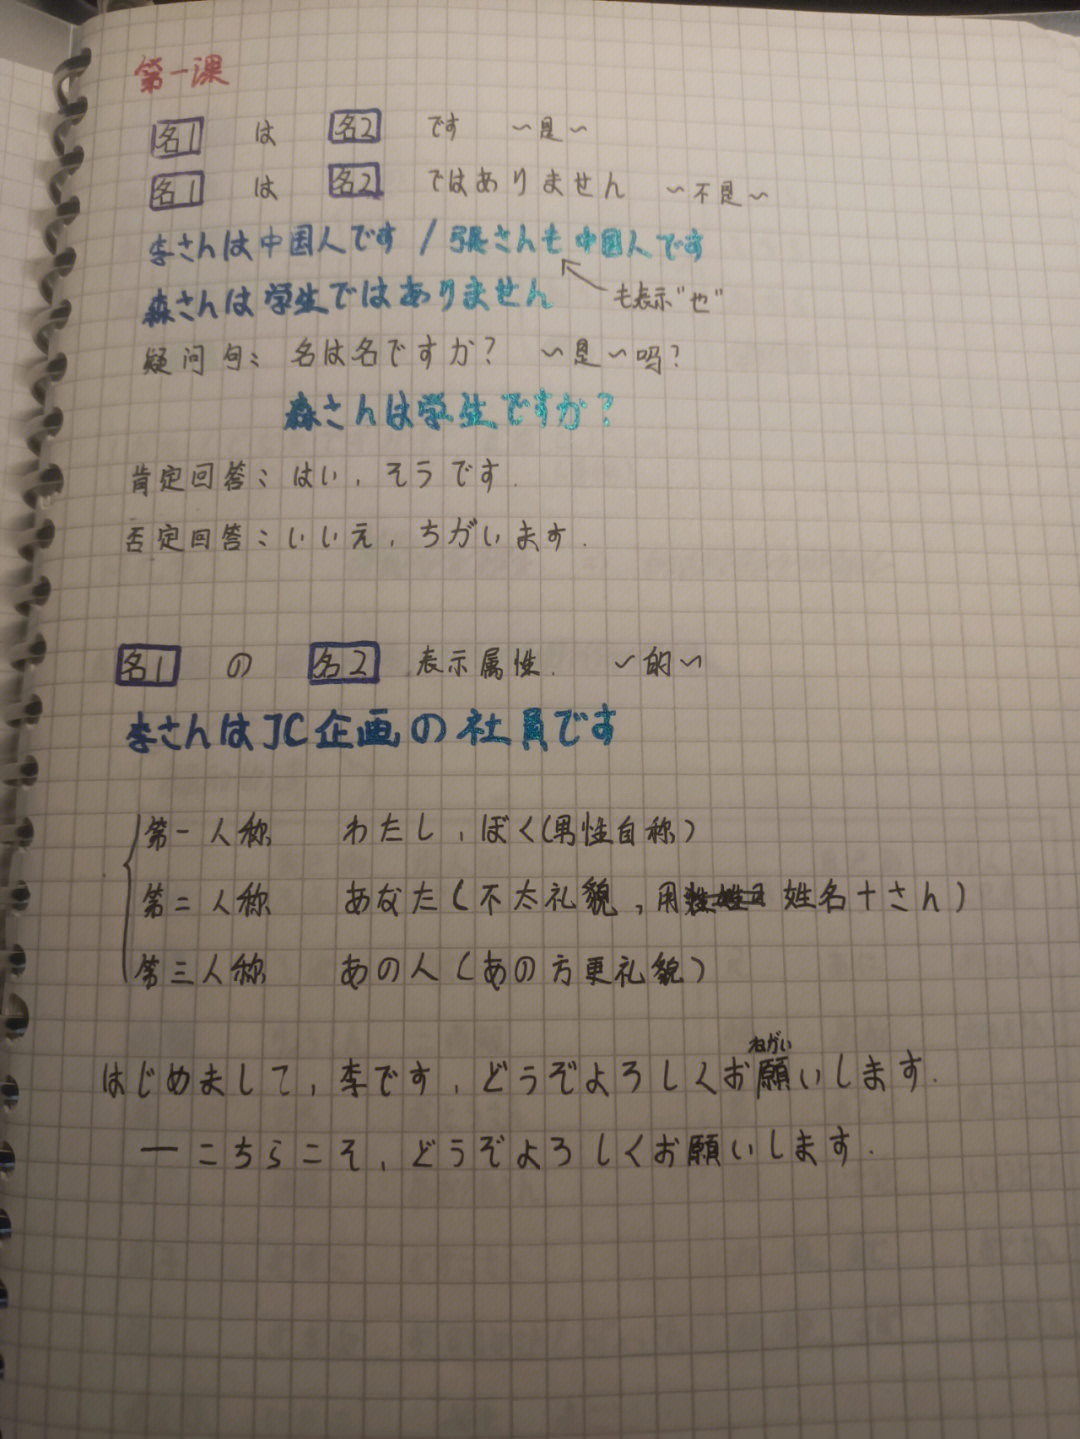 第一课
名1 は 名2 です ～是～
名1 は 名2 ではありません ～不是～
李さんは中国人です / 張さんも中国人です
森さんは学生ではありません も表示"也"
疑问句: 名は名ですか? ～是～吗?
森さんは学生ですか?
肯定回答: はい, そうです.
否定回答: いいえ, ちがいます.
名1 の 名2 表示属性. ～的～
李さんはJC企画の社員です
第一人称 わたし, ぼく(男性自称)
第二人称 あなた(不太礼貌, 用 姓名+さん)
第三人称 あの人(あの方更礼貌)
ねがい
はじめまして, 李です, どうぞよろしくお願いします.
— こちらこそ, どうぞよろしくお願いします.